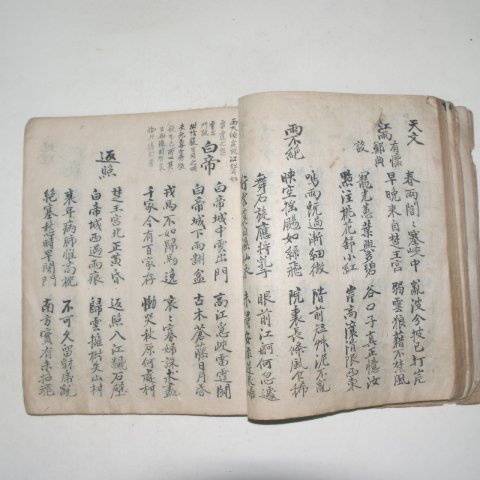 天文
江雨有懷鄭典設
春雨闇〻塞峽中 亂波分披已打岸
早晚來自楚王宮 弱雲狼藉不禁風
寵光蕙葉與多碧 谷口子真正憶汝
點注桃花舒小紅 岸高瀼滑限西東
雨不絶
鳴雨既過漸細微 階前短草泥不亂
映空搖颺如絲飛 院裏長條風乍稀
舞石旋應將乳子 眼前江舸何忽遽
白帝
白帝城中雲出門 高江急峽雷霆鬪
白帝城下雨翻盆 古木蒼藤日月昏
戎馬不如歸馬逸 哀〻寡婦誅求盡
千家今有百家存 慟哭秋原何處村
返照
楚王宮北正黃昏 返照入江翻石壁
白帝城西過雨痕 歸雲擁樹失山村
衰年病肺惟高枕 不可久留豺虎亂
絶塞愁時早閉門 南方實有未招魂